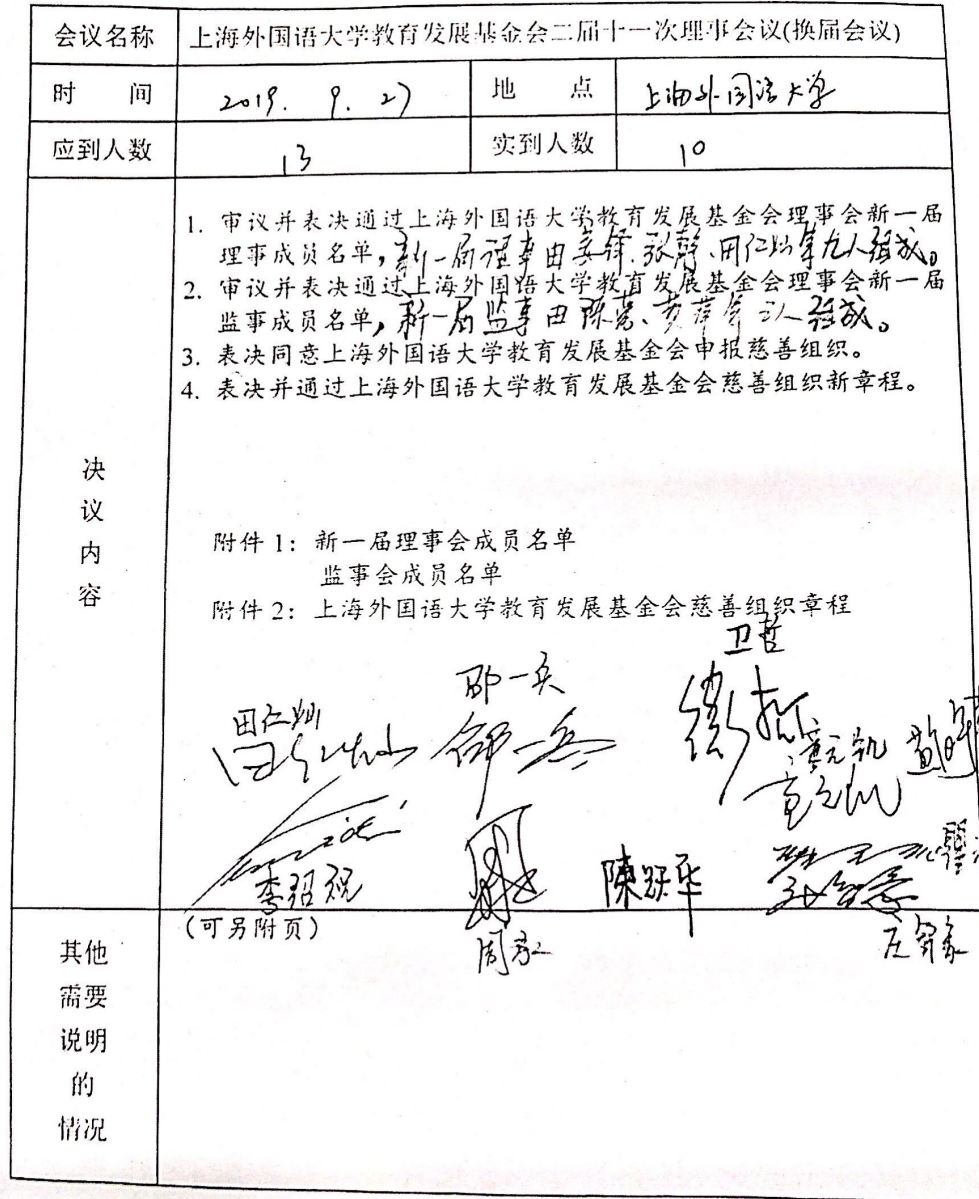 会议名称 上海外国语大学教育发展基金会二届十一次理事会议(换届会议)
时 间 2019. 9. 27 地 点 上海外国语大学
应到人数 13 实到人数 10
决议内容
1. 审议并表决通过上海外国语大学教育发展基金会理事会新一届
理事成员名单,新一届理事由姜锋、张静、田仁灿等九人组成。
2. 审议并表决通过上海外国语大学教育发展基金会理事会新一届
监事成员名单,新一届监事由陈 、 等三人组成。
3. 表决同意上海外国语大学教育发展基金会申报慈善组织。
4. 表决并通过上海外国语大学教育发展基金会慈善组织新章程。
附件 1: 新一届理事会成员名单
监事会成员名单
附件 2: 上海外国语大学教育发展基金会慈善组织章程
卫哲
邵一兵
田仁灿
邵一兵
李绍祝
陳跃华
(可另附页)
其他需要说明的情况